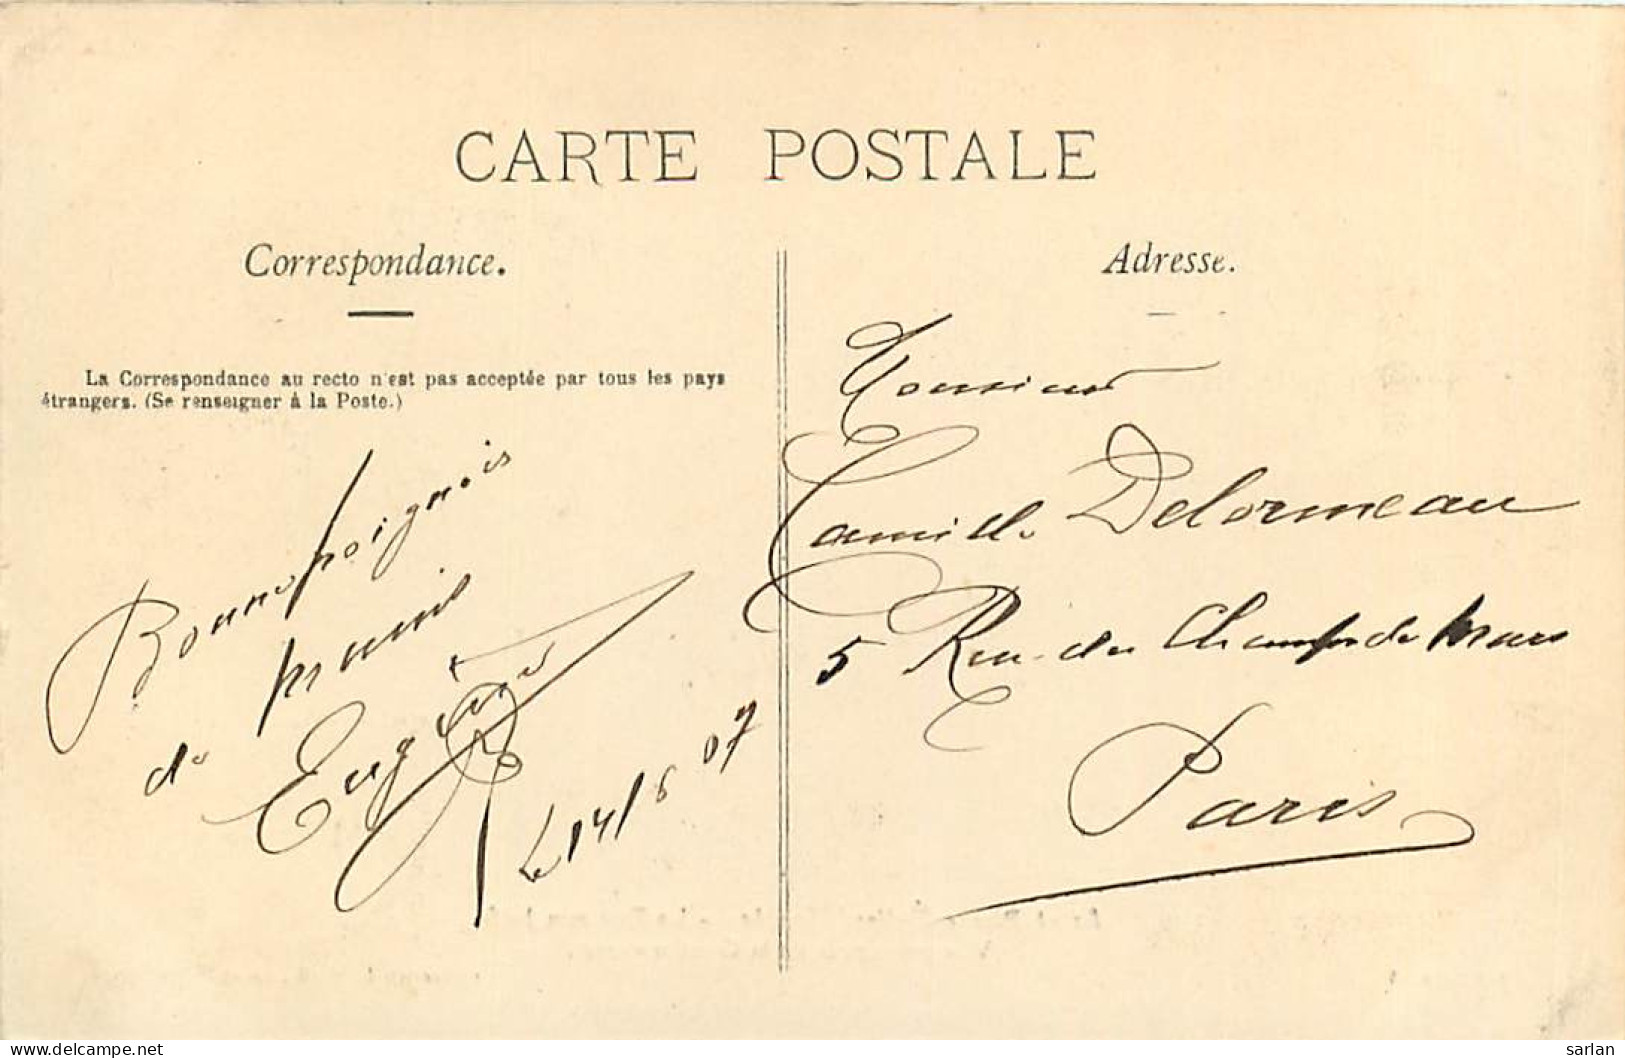 CARTE POSTALE
Correspondance.
Adresse.
La Correspondance au recto n'est pas acceptée par tous les pays
étrangers. (Se renseigner à la Poste.)
Bonne poignée
de main
Eugène
Le 14/6 07
Monsieur
Camille Delormeau
5 Rue du Champ de Mars
Paris
delcampe.net
sarlan